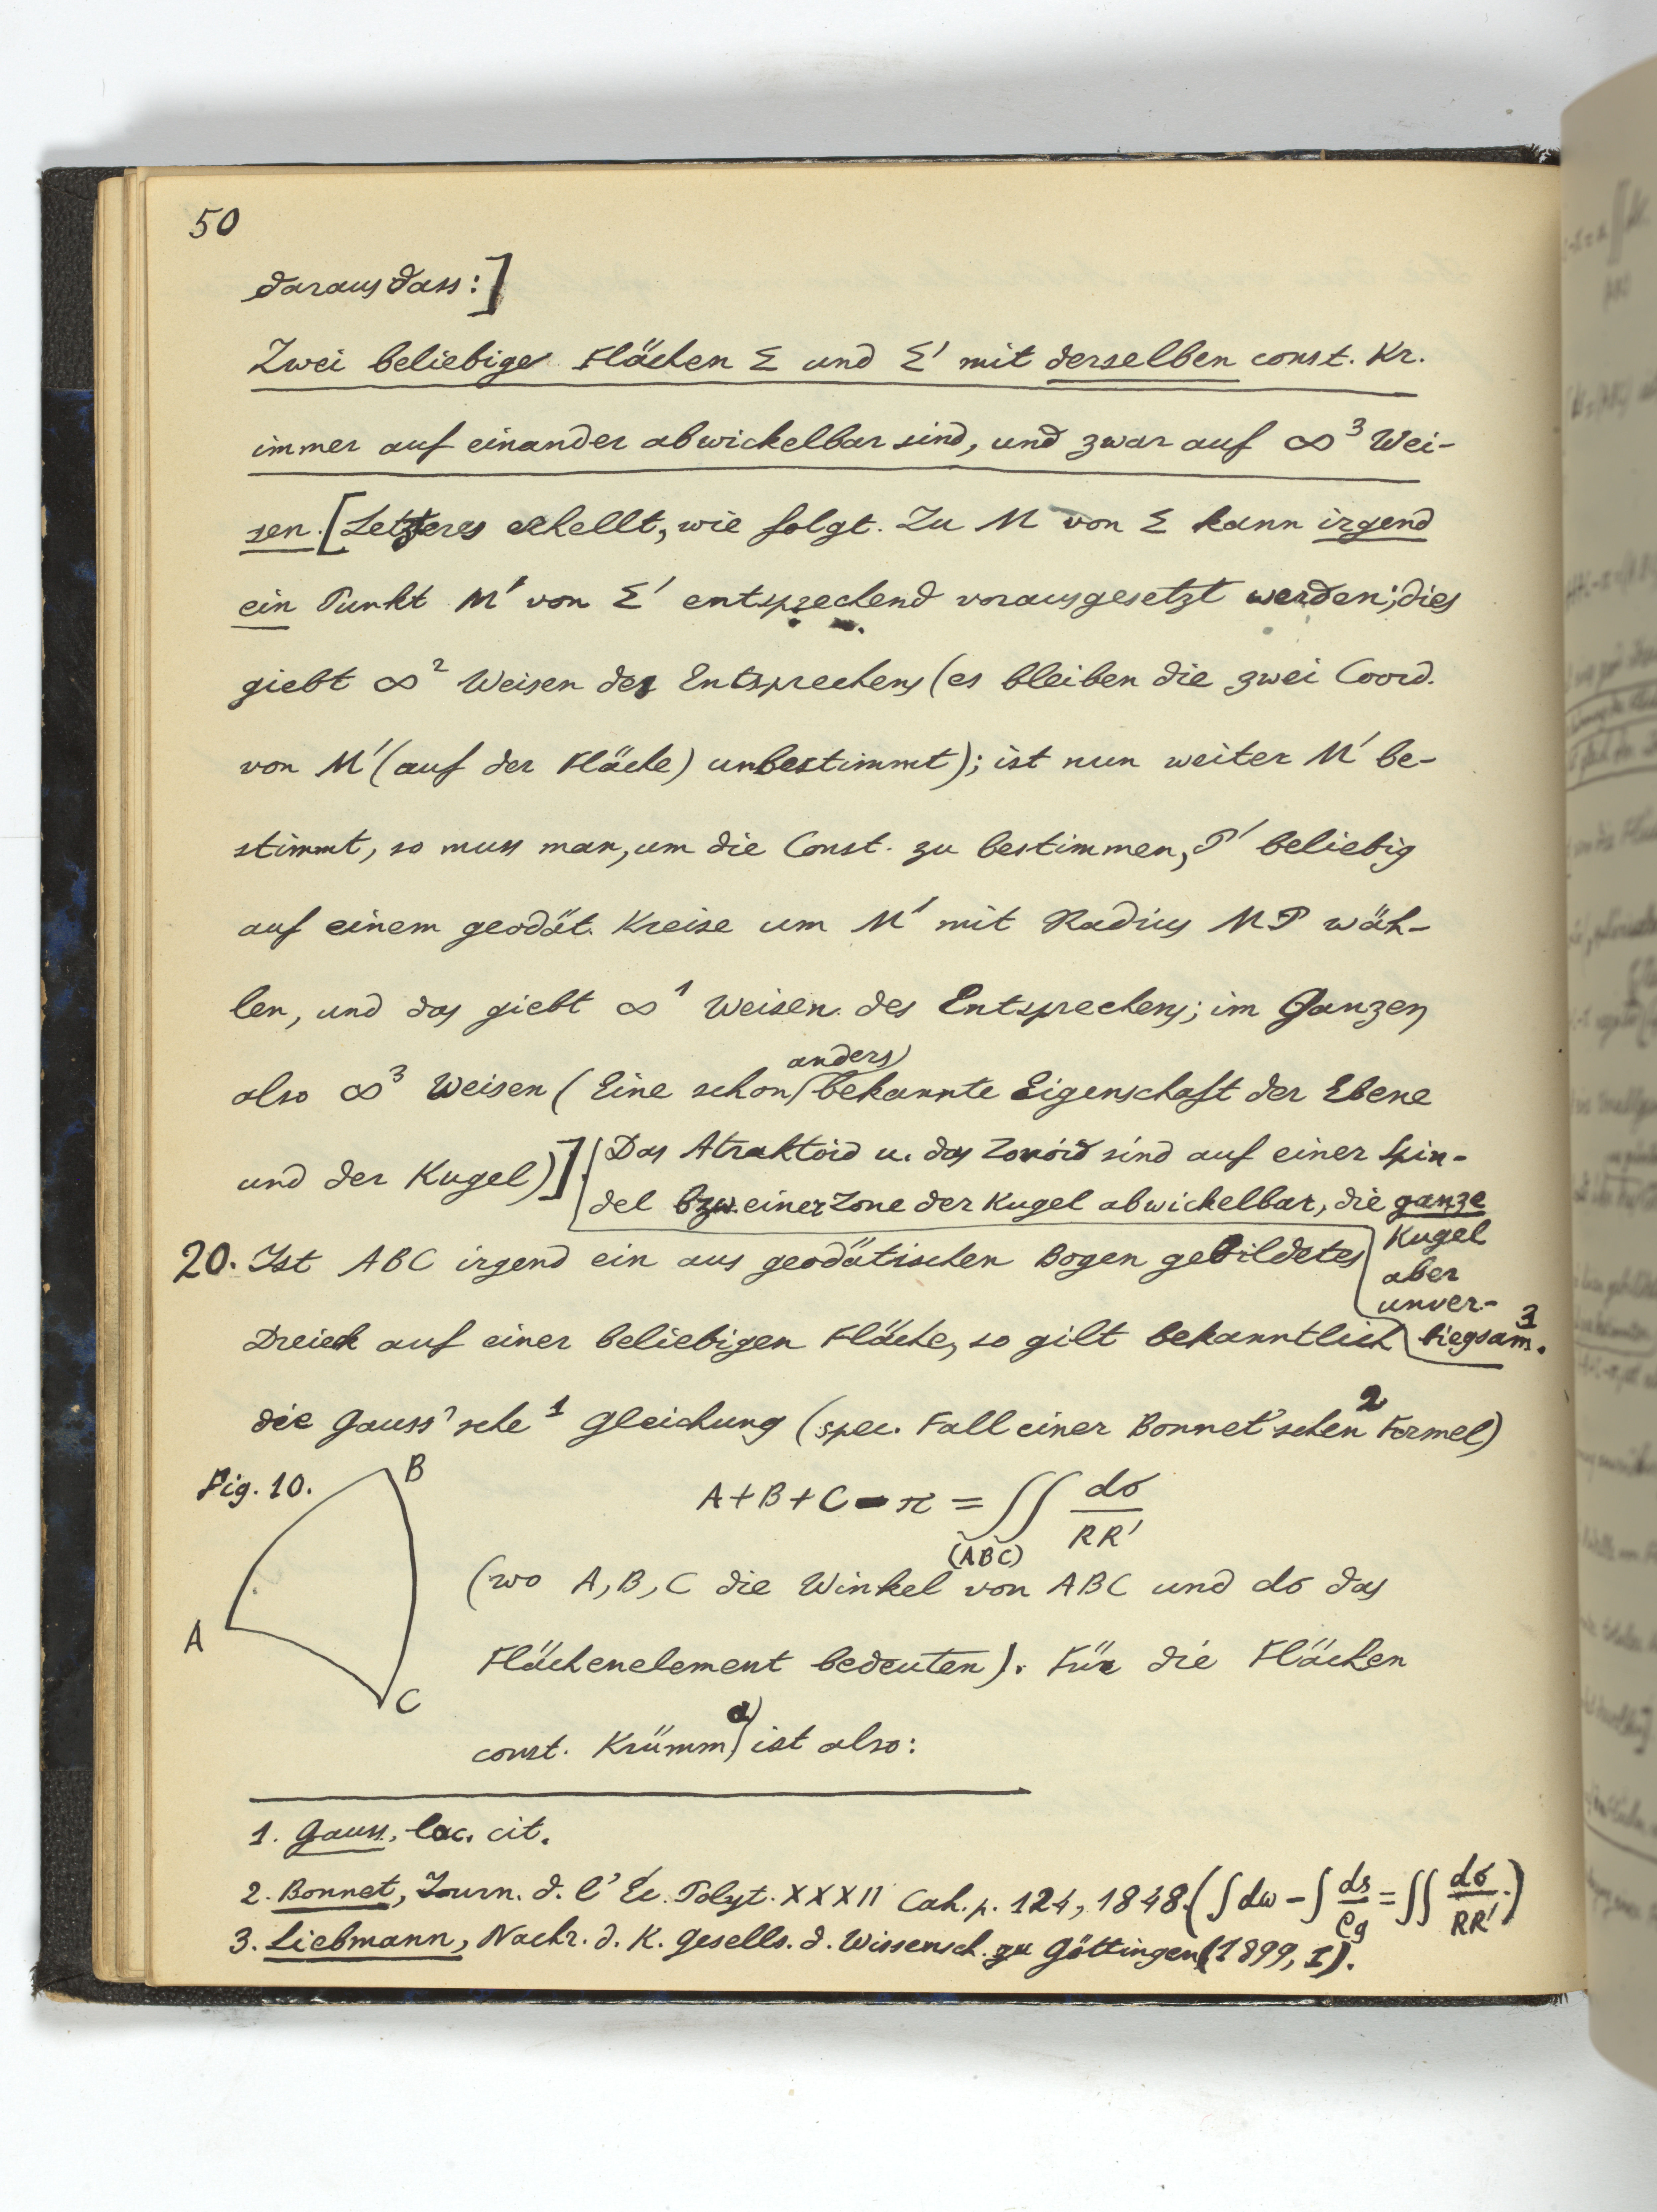 50
daraus dass:]
Zwei beliebige Flächen Σ und Σ' mit derselben const. Kr.
immer auf einander abwickelbar sind, und zwar auf ∞³ Wei-
sen. [Letzteres erhellt, wie folgt. Zu M von Σ kann irgend
ein Punkt M' von Σ' entsprechend vorausgesetzt werden; dies
giebt ∞² Weisen des Entsprechens (es bleiben die zwei Coord.
von M' (auf der Fläche) unbestimmt); ist nun weiter M' be-
stimmt, so muss man, um die Const. zu bestimmen, P' beliebig
auf einem geodät. Kreise um M' mit Radius MP wäh-
len, und das giebt ∞¹ Weisen des Entsprechens; im Ganzen
also ∞³ Weisen (Eine schon anders bekannte Eigenschaft der Ebene
und der Kugel)].
Das Atraktoid u. das Zonoid sind auf einer Spin-
del bzw. einer Zone der Kugel abwickelbar, die ganze
Kugel
aber
unver-
biegsam³.
20. Ist ABC irgend ein aus geodätischen Bogen gebildetes
Dreieck auf einer beliebigen Fläche, so gilt bekanntlich
die Gauss'sche¹ Gleichung (spec. Fall einer Bonnet'schen² Formel)
Fig. 10.
B
A
C
A+B+C-π = ∫∫ dσ/RR'
(ABC)
(wo A, B, C die Winkel von ABC und dσ das
Flächenelement bedeuten). Für die Flächen
const. Krümm) ist also:
1. Gauss, loc. cit.
2. Bonnet, Journ. d. l'Éc. Polyt. XXXII Cah. p. 124, 1848. (∫dω - ∫ds/ρg = ∫∫ dσ/RR'.)
3. Liebmann, Nachr. d. K. Gesells. d. Wissensch. zu Göttingen (1899, I).